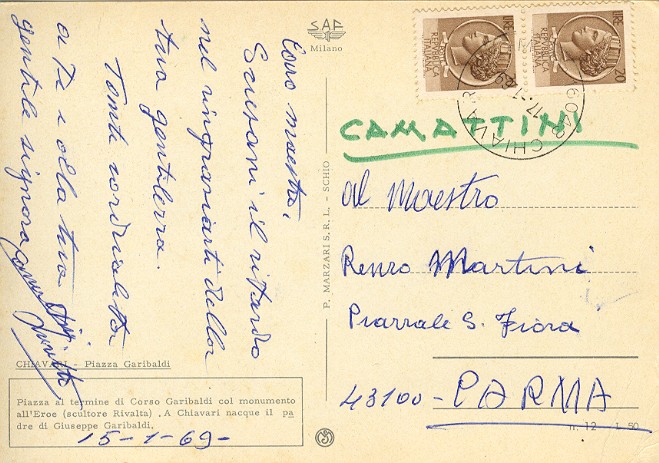 SAF
Milano
Caro maestro,
Scusami il ritardo
nel ringraziarti della
tua gentilezza.
Tante cordialità
a Te e alla tua
gentile signora
CHIAVARI - Piazza Garibaldi
Piazza al termine di Corso Garibaldi col monumento
all'Eroe (scultore Rivalta). A Chiavari nacque il pa
dre di Giuseppe Garibaldi,
15-1-69-
P. MARZARI S. R. L. - SCHIO
CAMATTINI
al Maestro
Renzo Martini
Piazzale S. Fiora
43100 - PARMA
n. 12 L. 50
REPUBBLICA
ITALIANA
LIRE
20
CHIAVARI